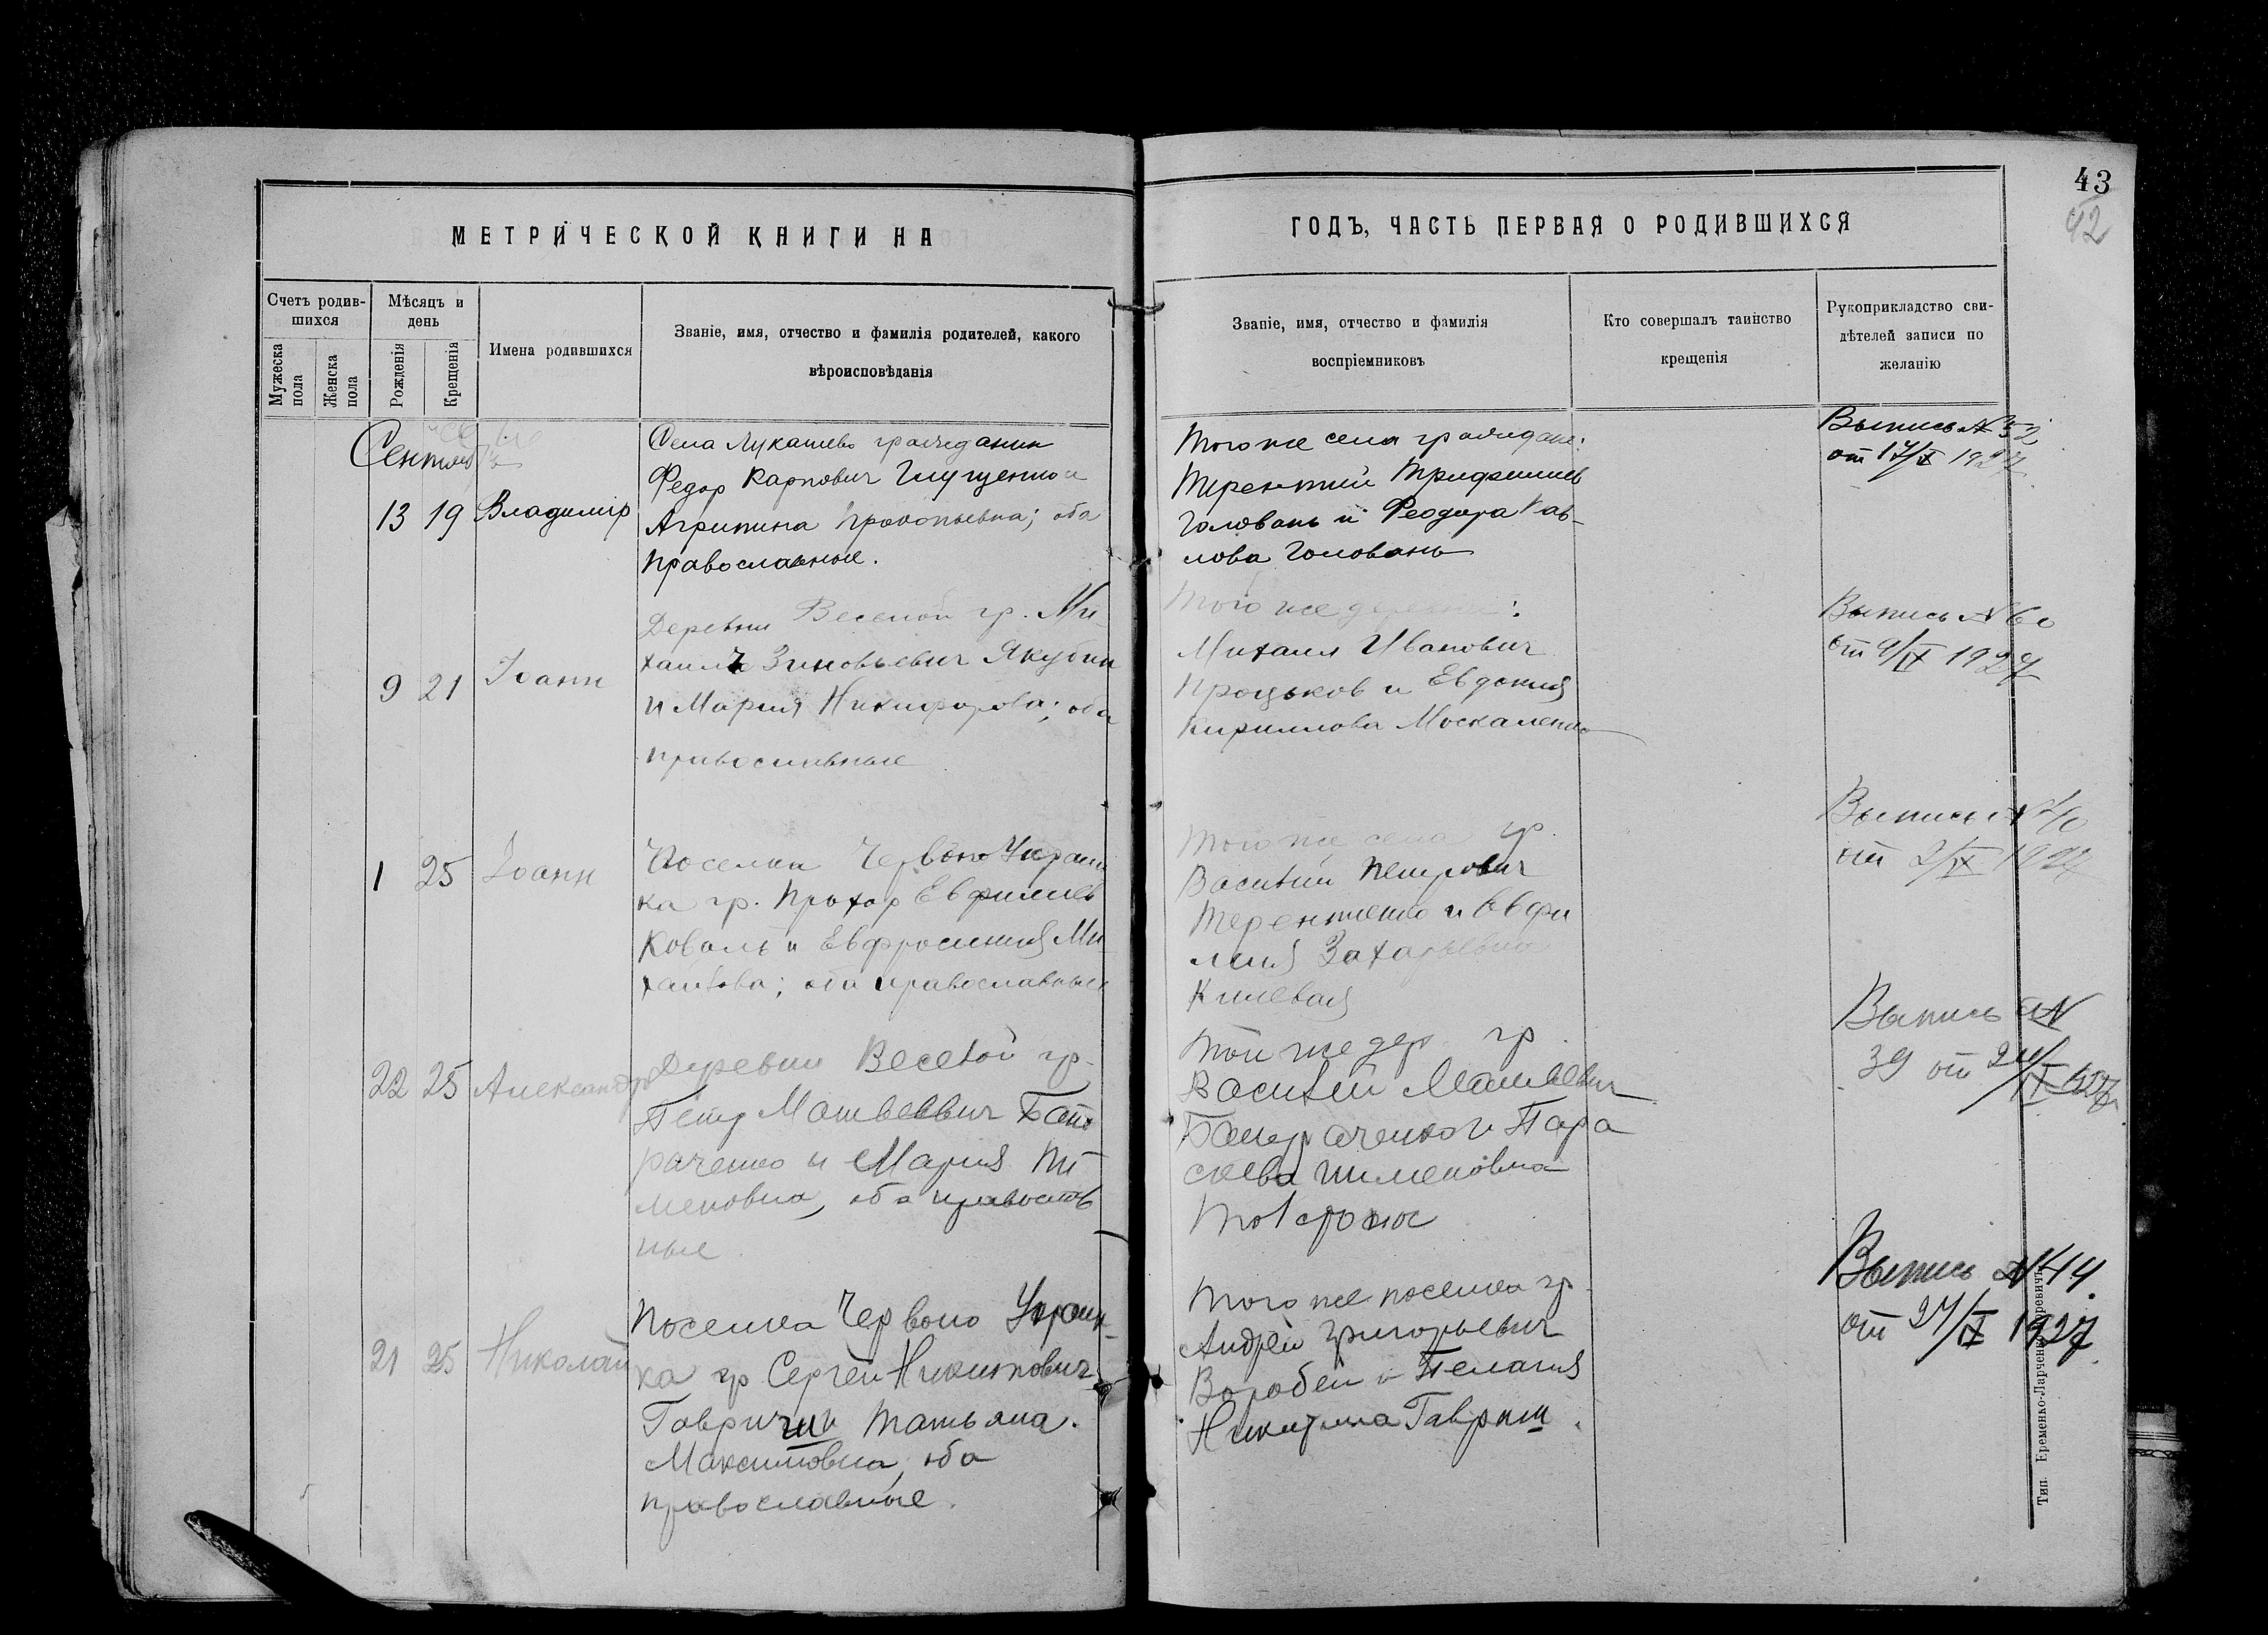 43
42
МЕТРИЧЕСКОЙ КНИГИ НА
ГОДЪ, ЧАСТЬ ПЕРВАЯ О РОДИВШИХСЯ
Счетъ родив-
шихся
Мужеска
пола
Женска
пола
Мѣсяцъ и
день
Рожденія
Крещенія
Имена родившихся
Званіе, имя, отчество и фамилія родителей, какого
вѣроисповѣданія
Званіе, имя, отчество и фамилія
воспріемниковъ
Кто совершалъ таинство
крещенія
Рукоприкладство сви-
дѣтелей записи по
желанію
Сентябр
13 19 Владимір
Села Лукашево гражданин
Федор Карпович Глущенко и
Агрипина Прокопьевна; оба
православные.
Того же села граждане:
Терентий Трифониев
Головань и Феодора Пав-
лова Головань
Выпись № 52
от 17/X 1927
9 21 Іоанн
Деревни Веселой гр. Ми-
хаилъ Зиновьевич Якубин
и Мария Никифорова; оба
православные
Того же деревни:
Михаил Иванович
Процьков и Евдокия
Кириллова Москаленко
Выпись № 60
от 9/IX 1927
1 25 Іоанн
Поселка Червоно Украин
ка гр. Прохор Евфимиев
Коваль и Евфросиния Ми
хайлова; оба православные
Того же села гр.
Василий Петрович
Терентиенко и Евфи
мия Захарьевна
Килевая
Выпись № 40
от 2/IX 1927
22 25 Александр
Деревни Веселой гр.
Петр Матвеевич Бат
раченко и Мария Пи
меновна, оба православ
ные
Той же дер. гр.
Василий Матвеевич
Батраченко и Пара
скева Пименовна
Выпись №
39 от 24/IX 1927
21 25 Николай
Поселка Червоно Украин-
ка гр Сергей Никитович
Гавриш и Татьяна
Максимовна, оба
православные.
Того же поселка гр.
Андрей Григорьевич
Воробей и Пелагия
Никитина Гавриш.
Выпись № 44.
от 27/IX 1927.
Тип. Еременко-Ларченко